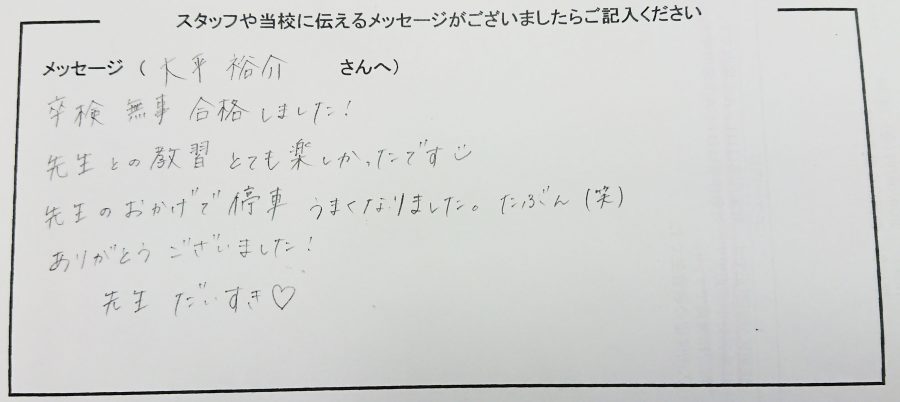 スタッフや当校に伝えるメッセージがございましたらご記入ください
メッセージ ( 大平 裕介 さんへ)
卒検 無事 合格しました!
先生との教習 とても楽しかったです
先生のおかげで停車 うまくなりました。たぶん (笑)
ありがとう ございました!
先生 だいすき♡